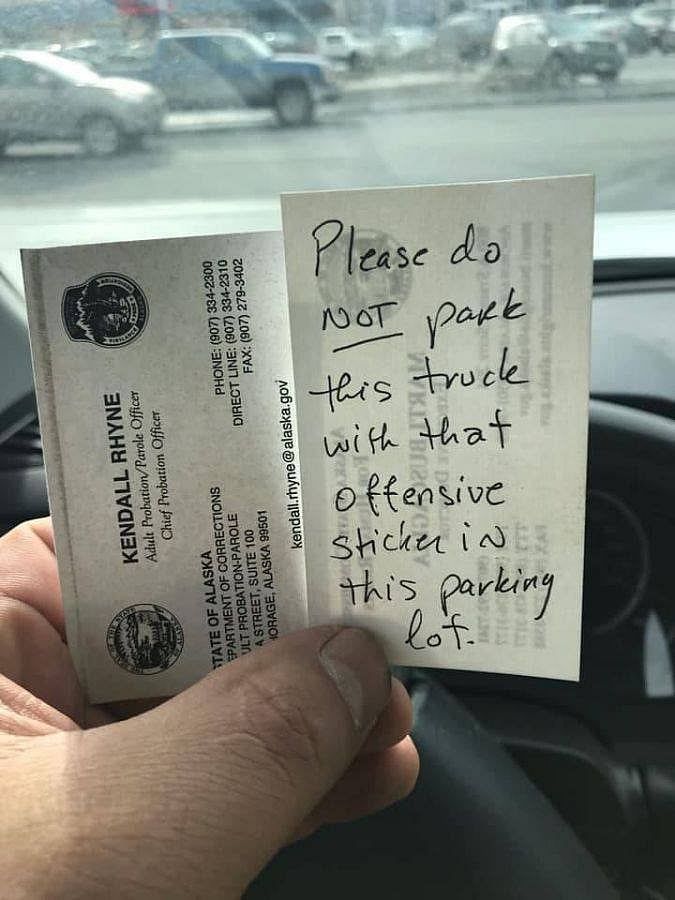 KENDALL RHYNE
Adult Probation/Parole Officer
Chief Probation Officer
STATE OF ALASKA
DEPARTMENT OF CORRECTIONS
ULT PROBATION-PAROLE
A STREET, SUITE 100
HORAGE, ALASKA 99501
PHONE: (907) 334-2300
DIRECT LINE: (907) 334-2310
FAX: (907) 279-3402
kendall.rhyne@alaska.gov
Please do
NOT park
this truck
with that
offensive
sticker in
this parking
lot.